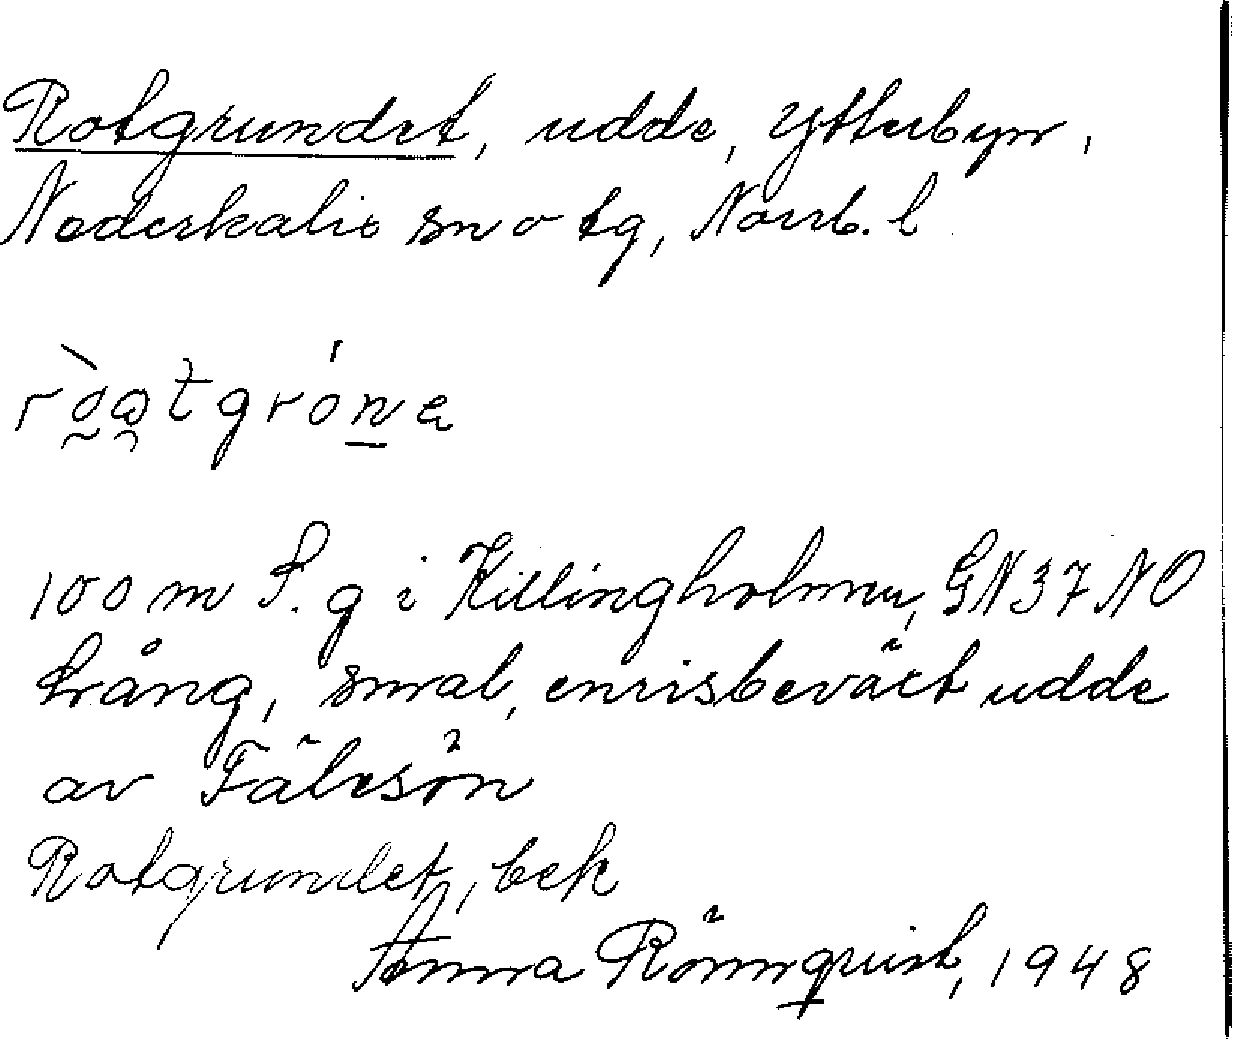 Rotgrundet, udde, Ytterbyn,
Nederkalix sn o tg, Norrb. l
100 m S. g i Killingholmen, GN 37 NO
trång, smal, enrisbeväxt udde
av Fälesön
Rotgrundet, bek
Anna Rönnqvist, 1948